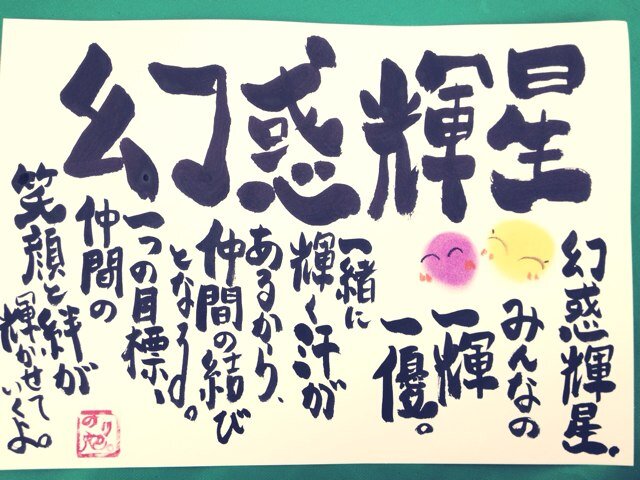 幻惑輝星
幻惑輝星、
みんなの
一輝
一優。
一緒に
輝く汗が
あるから、
仲間の結び
となる。
一つの目標、
仲間の
笑顔と絆が
輝かせて
いくよ。